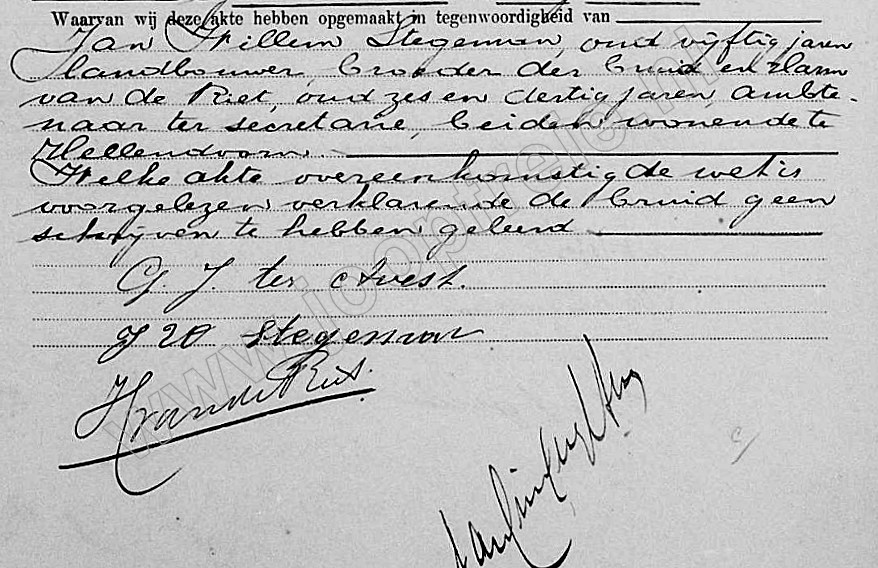 Waarvan wij deze akte hebben opgemaakt in tegenwoordigheid van
Jan Willem Stegeman, oud vijftig jaren
landbouwer, broeder der bruid en Harm
van de Riet, oud zes en dertig jaren, ambte-
naar ter secretarie, beiden wonende te
Hellendoorn.
Welke akte overeenkomstig de wet is
voorgelezen, verklarende de bruid geen
schrijven te hebben geleerd
G. J. ter Avest.
J W Stegeman
H van de Riet.